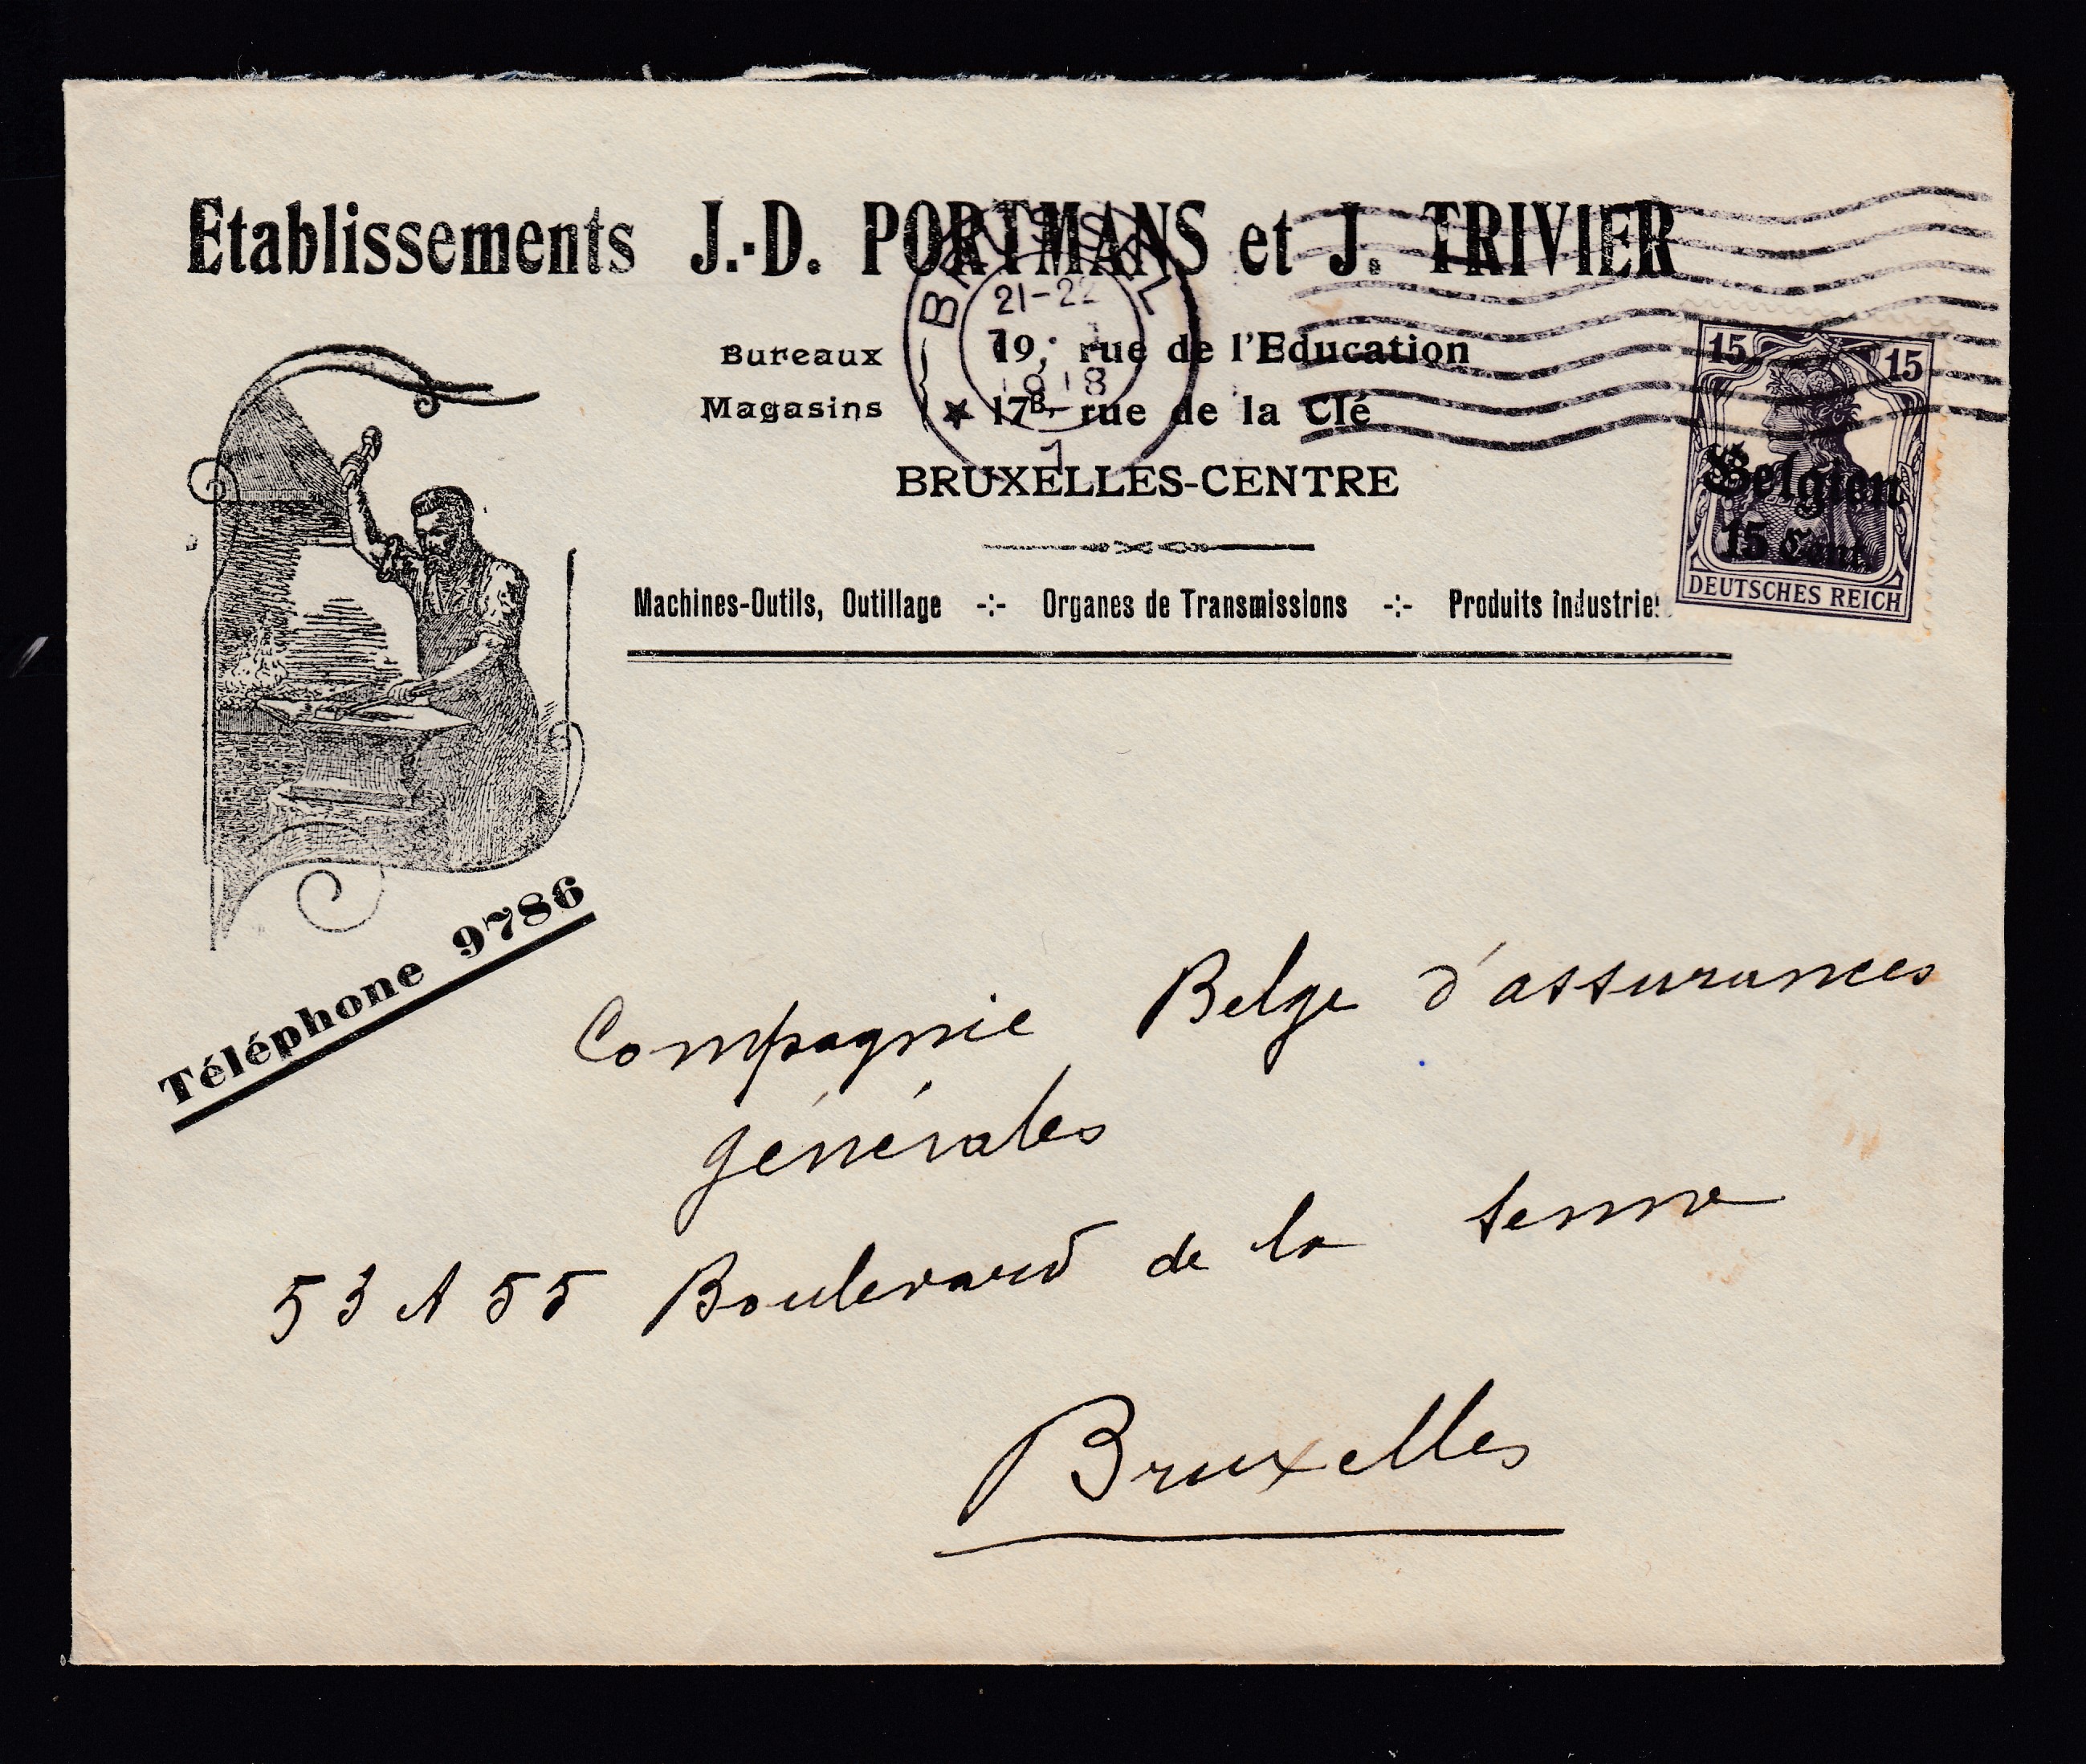 Etablissements J.-D. PORTMANS et J. TRIVIER
Bureaux 19, rue de l'Education
Magasins 17B, rue de la Clé
BRUXELLES-CENTRE
Machines-Outils, Outillage -:- Organes de Transmissions -:- Produits industriel
BRÜSSEL
21-22
1918
1
15 15
Belgien
15 Cent.
DEUTSCHES REICH
Téléphone 9786
Compagnie Belge d'assurances
générales
53 A 55 Boulevard de la senne
Bruxelles